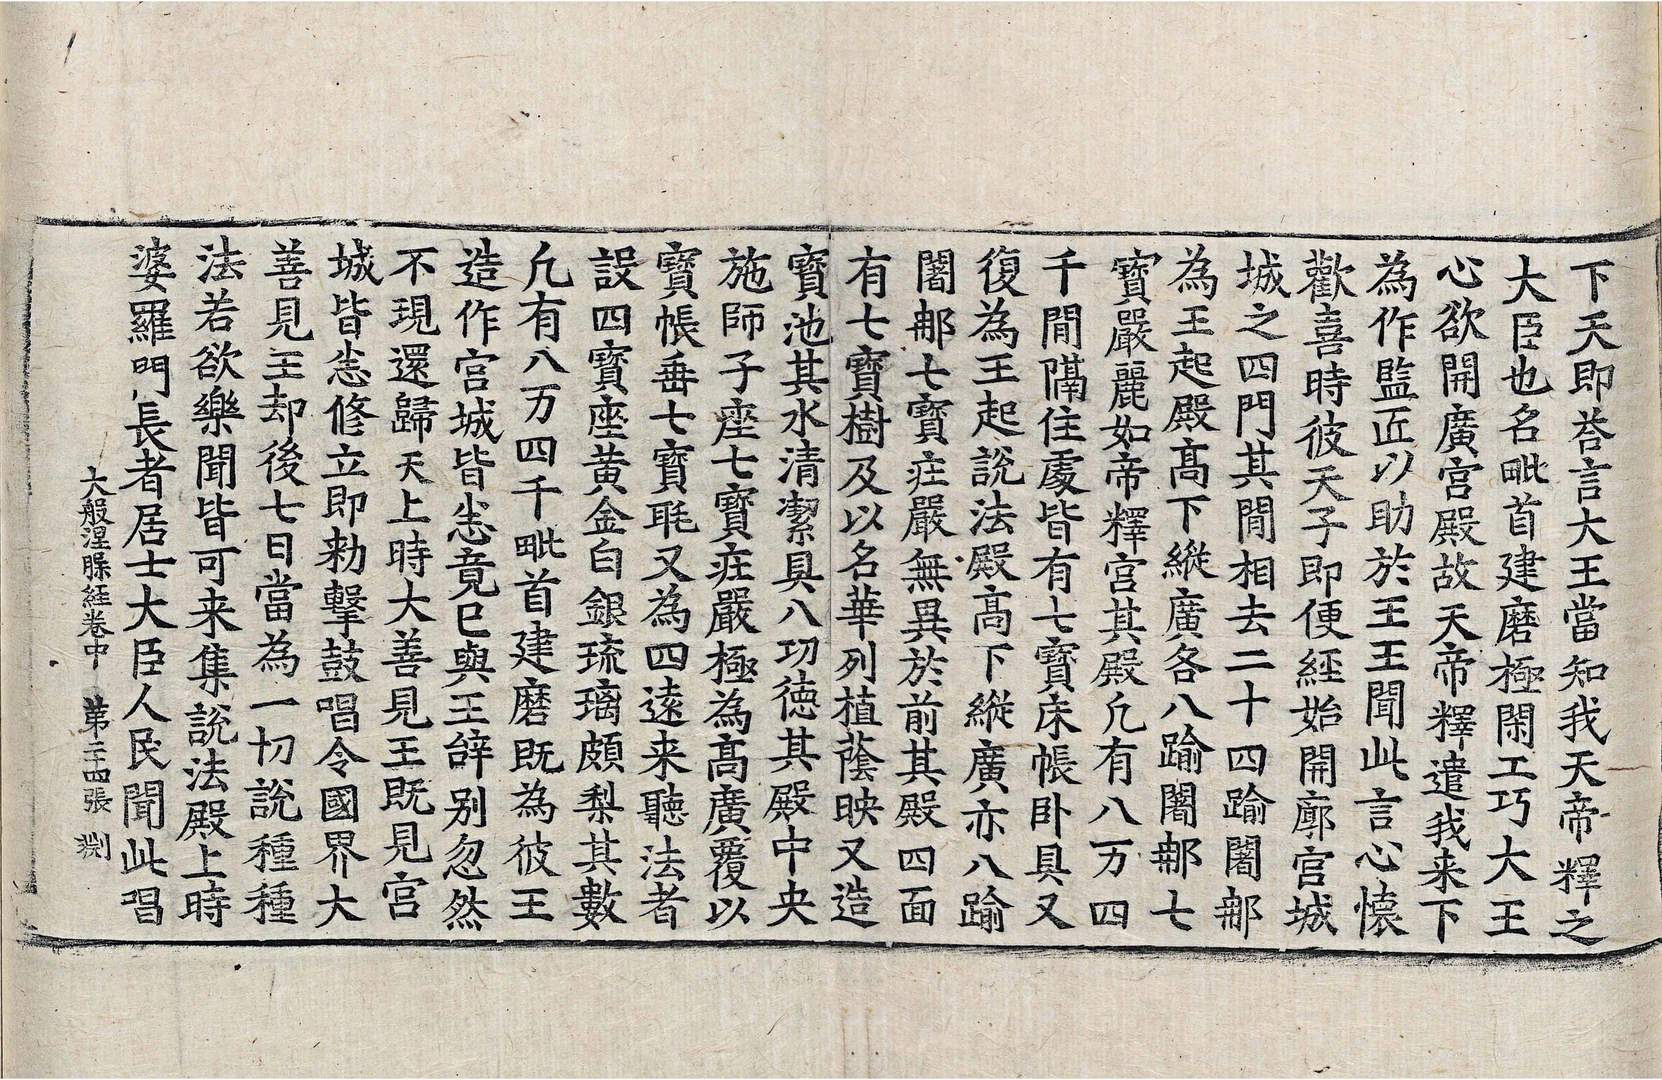 下天即荅言大王當知我天帝釋之
大臣也名毗首建磨極閑工巧大王
心欲開廣宫殿故天帝釋遣我来下
為作監匠以助於王王聞此言心懷
歡喜時彼天子即便經始開廓宫城
城之四門其間相去二十四踰闍郍
為王起殿髙下縱廣各八踰闍郍七
寳嚴麗如帝釋宫其殿凢有八万四
千間隔住處皆有七寳床帳卧具又
復為王起說法殿髙下縱廣亦八踰
闍郍七寳庄嚴無異於前其殿四面
有七寳樹及以名華列植蔭映又造
寳池其水清潔具八功徳其殿中央
施師子座七寳庄嚴極為髙廣覆以
寳帳垂七寳毦又為四逺来聽法者
設四寳座黄金白銀琉璃頗梨其數
凢有八万四千毗首建磨既為彼王
造作宫城皆悉竟已與王辞别忽然
不現還歸天上時大善見王既見宫
城皆悉修立即勑擊鼓唱令國界大
善見王却後七日當為一切說種種
法若欲樂聞皆可来集說法殿上時
婆羅門長者居士大臣人民聞此唱
大般涅槃経卷中 第二十四張 㓨